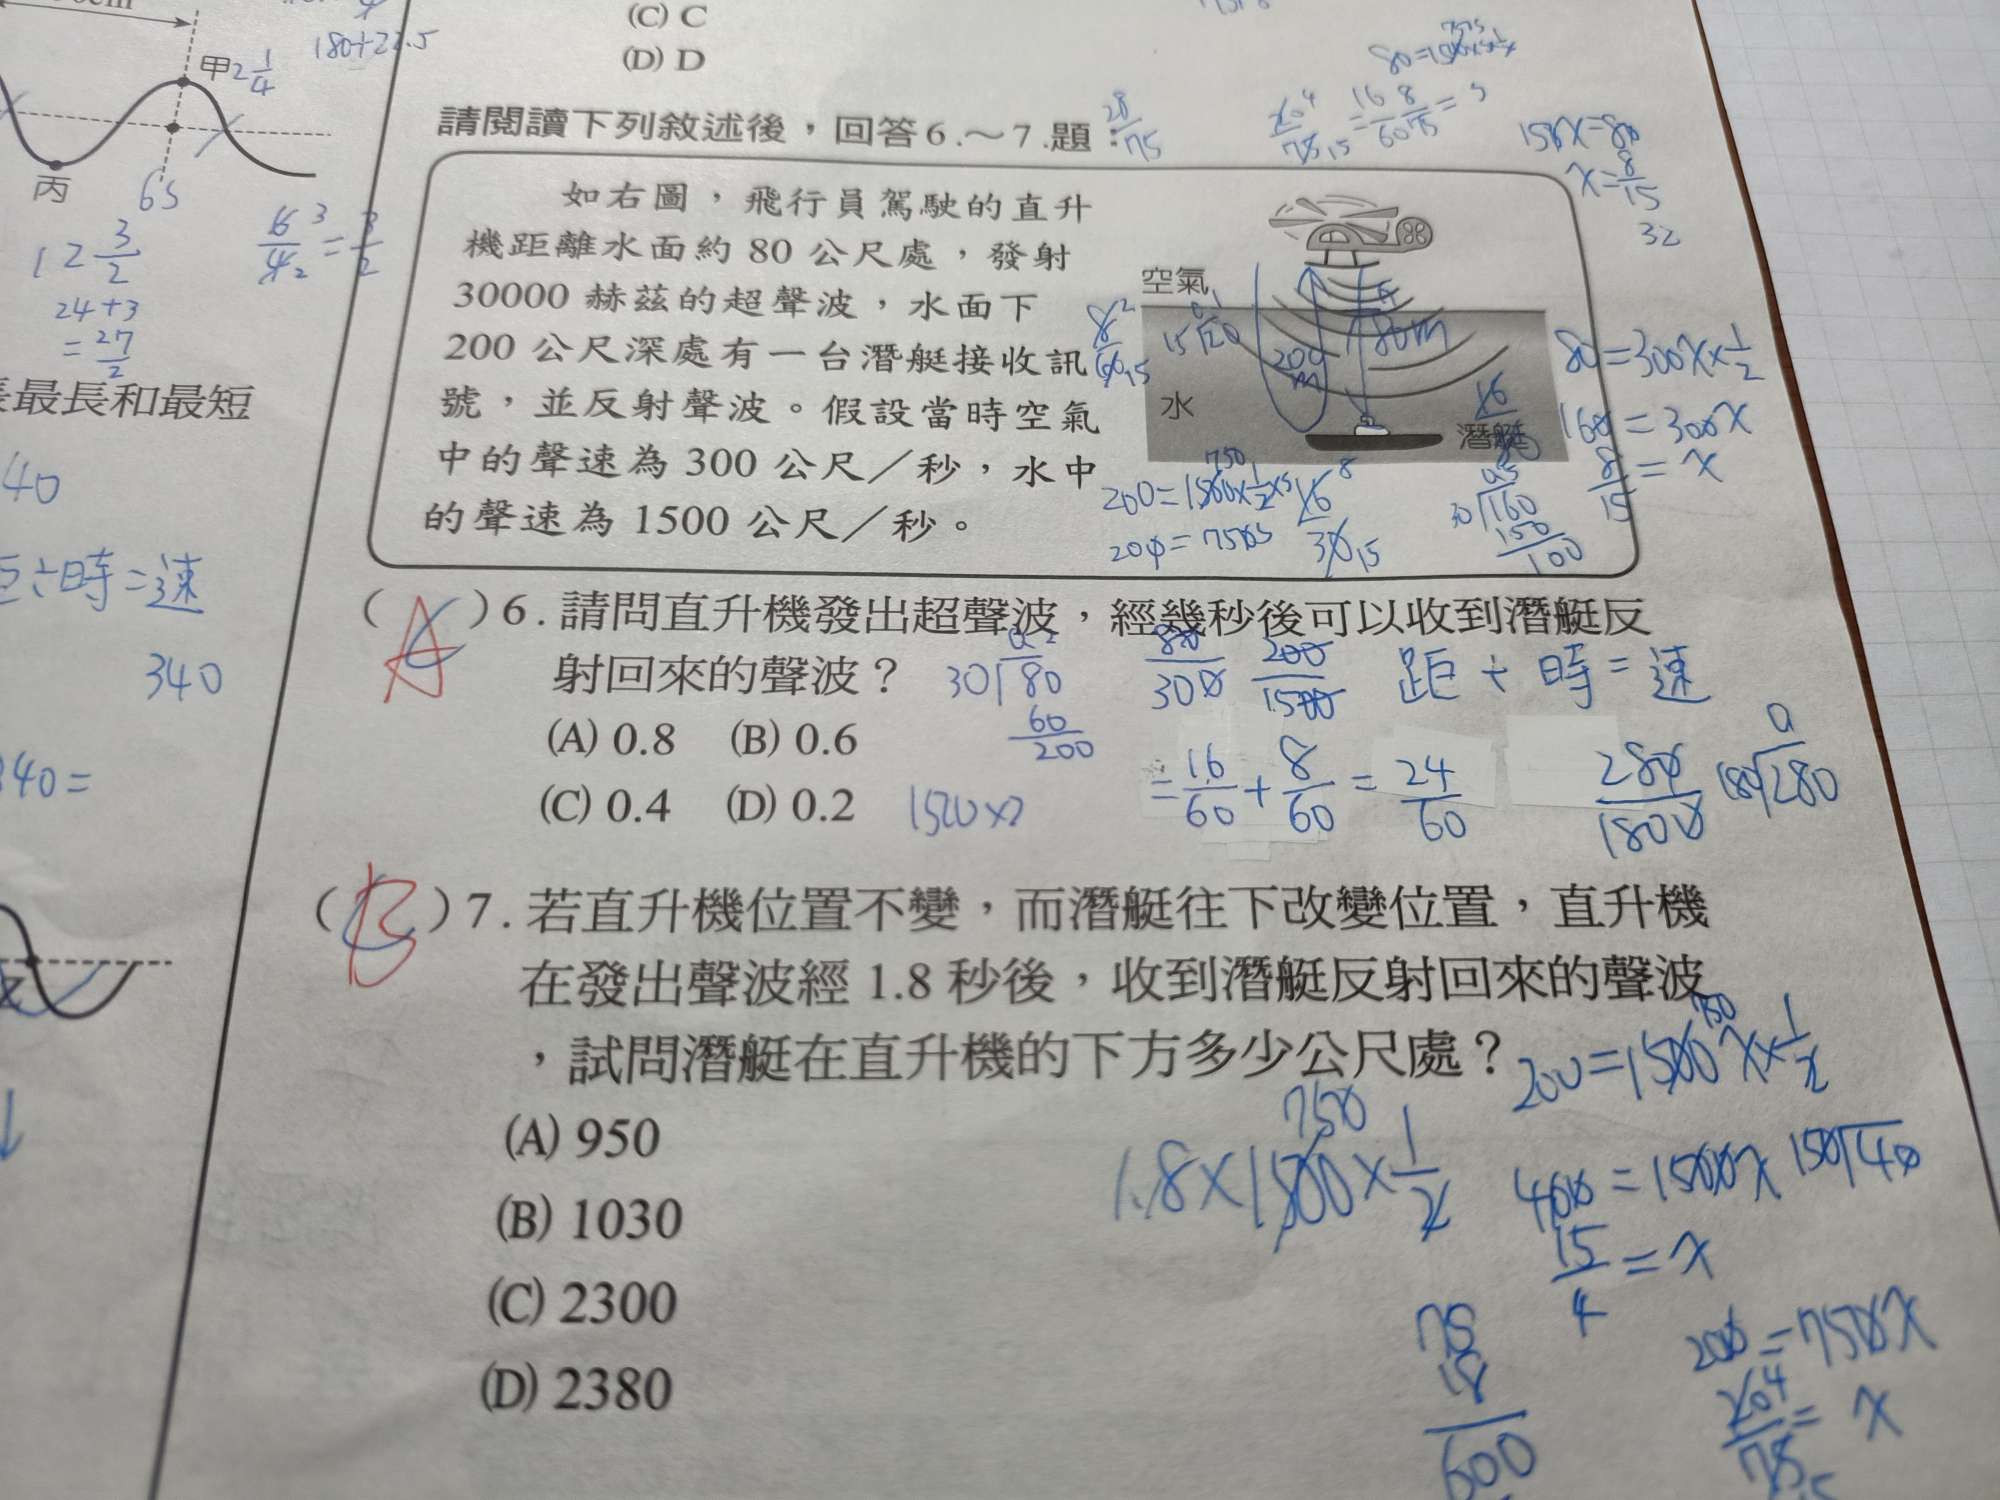 (C) C
(D) D
180+22.5
甲 2 1/4
丙
6s
6/4 = 3/2
12 3/2
24+3
= 27/2
最長和最短
40
÷時=速
340
340=
請閱讀下列敘述後，回答6.～7.題：
28/75
15x=80
x=8/15
32
如右圖，飛行員駕駛的直升
機距離水面約 80 公尺處，發射
30000 赫茲的超聲波，水面下
200 公尺深處有一台潛艇接收訊
號，並反射聲波。假設當時空氣
中的聲速為 300 公尺／秒，水中
的聲速為 1500 公尺／秒。
空氣
水
潛艇
80m
200m
80=300x×1/2
160=300x
8/15=x
30√160
150
100
( A )6.請問直升機發出超聲波，經幾秒後可以收到潛艇反
射回來的聲波？
(A) 0.8 (B) 0.6
(C) 0.4 (D) 0.2
30√80
60
200
80/300 200/1500
距÷時=速
=16/60+8/60=24/60
280/1800
180√280
( B )7.若直升機位置不變，而潛艇往下改變位置，直升機
在發出聲波經 1.8 秒後，收到潛艇反射回來的聲波
，試問潛艇在直升機的下方多少公尺處？
(A) 950
(B) 1030
(C) 2300
(D) 2380
750
1.8×1500×1/2
750
200=1500x×1/2
400=1500x
150√40
15/4=x
200=750x
204/75=x
600